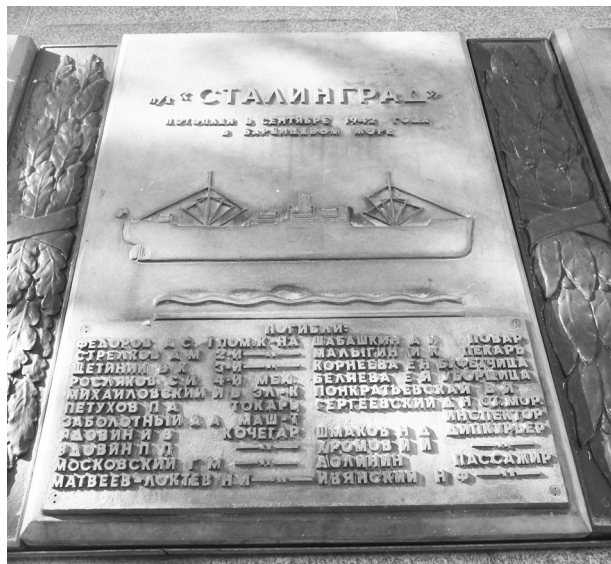 п/х «СТАЛИНГРАД»
ПОТОПЛЕН В СЕНТЯБРЕ 1942 ГОДА
В БАРЕНЦЕВОМ МОРЕ
ПОГИБЛИ:
ФЕДОРОВ А С 1 ПОМ. К-НА
СТРЕЛКОВ А М 2-Й —„—
ЩЕТИНИН В Х 3-Й —„—
РОСЛЯКОВ С И 4-Й МЕХ.
МИХАЙЛОВСКИЙ И В ЭЛ-К
ПЕТУХОВ П А ТОКАРЬ
ЗАБОЛОТНЫЙ А А МАШ-Т
ЯДОВИН И В КОЧЕГАР
ВДОВИН П П —„—
МОСКОВСКИЙ Г М —„—
МАТВЕЕВ-ЛОКТЕВ Н М —„—
ШАБАШКИН А И ПОВАР
МАЛЫГИН И К ПЕКАРЬ
КОРНЕЕВА Е Н БУФЕТЧИЦА
БЕЛЯЕВА Е Я УБОРЩИЦА
ПОНКРАТЬЕВСКАЯ В И —„—
СЕРГЕЕВСКИЙ Д Н СТ. МОР.
ИНСПЕКТОР
ШМАКОВ Н Д ДИПКУРЬЕР
ХРОМОВ И И —„—
ДОЛИНИН ПАССАЖИР
ИВЯНСКИЙ Н Ф —„—